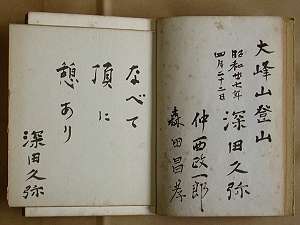 大峰山登山
昭和廿七年
四月二十二日
深田久弥
仲西政一郎
森田昌孝
なべて
頂に
憩あり
深田久弥